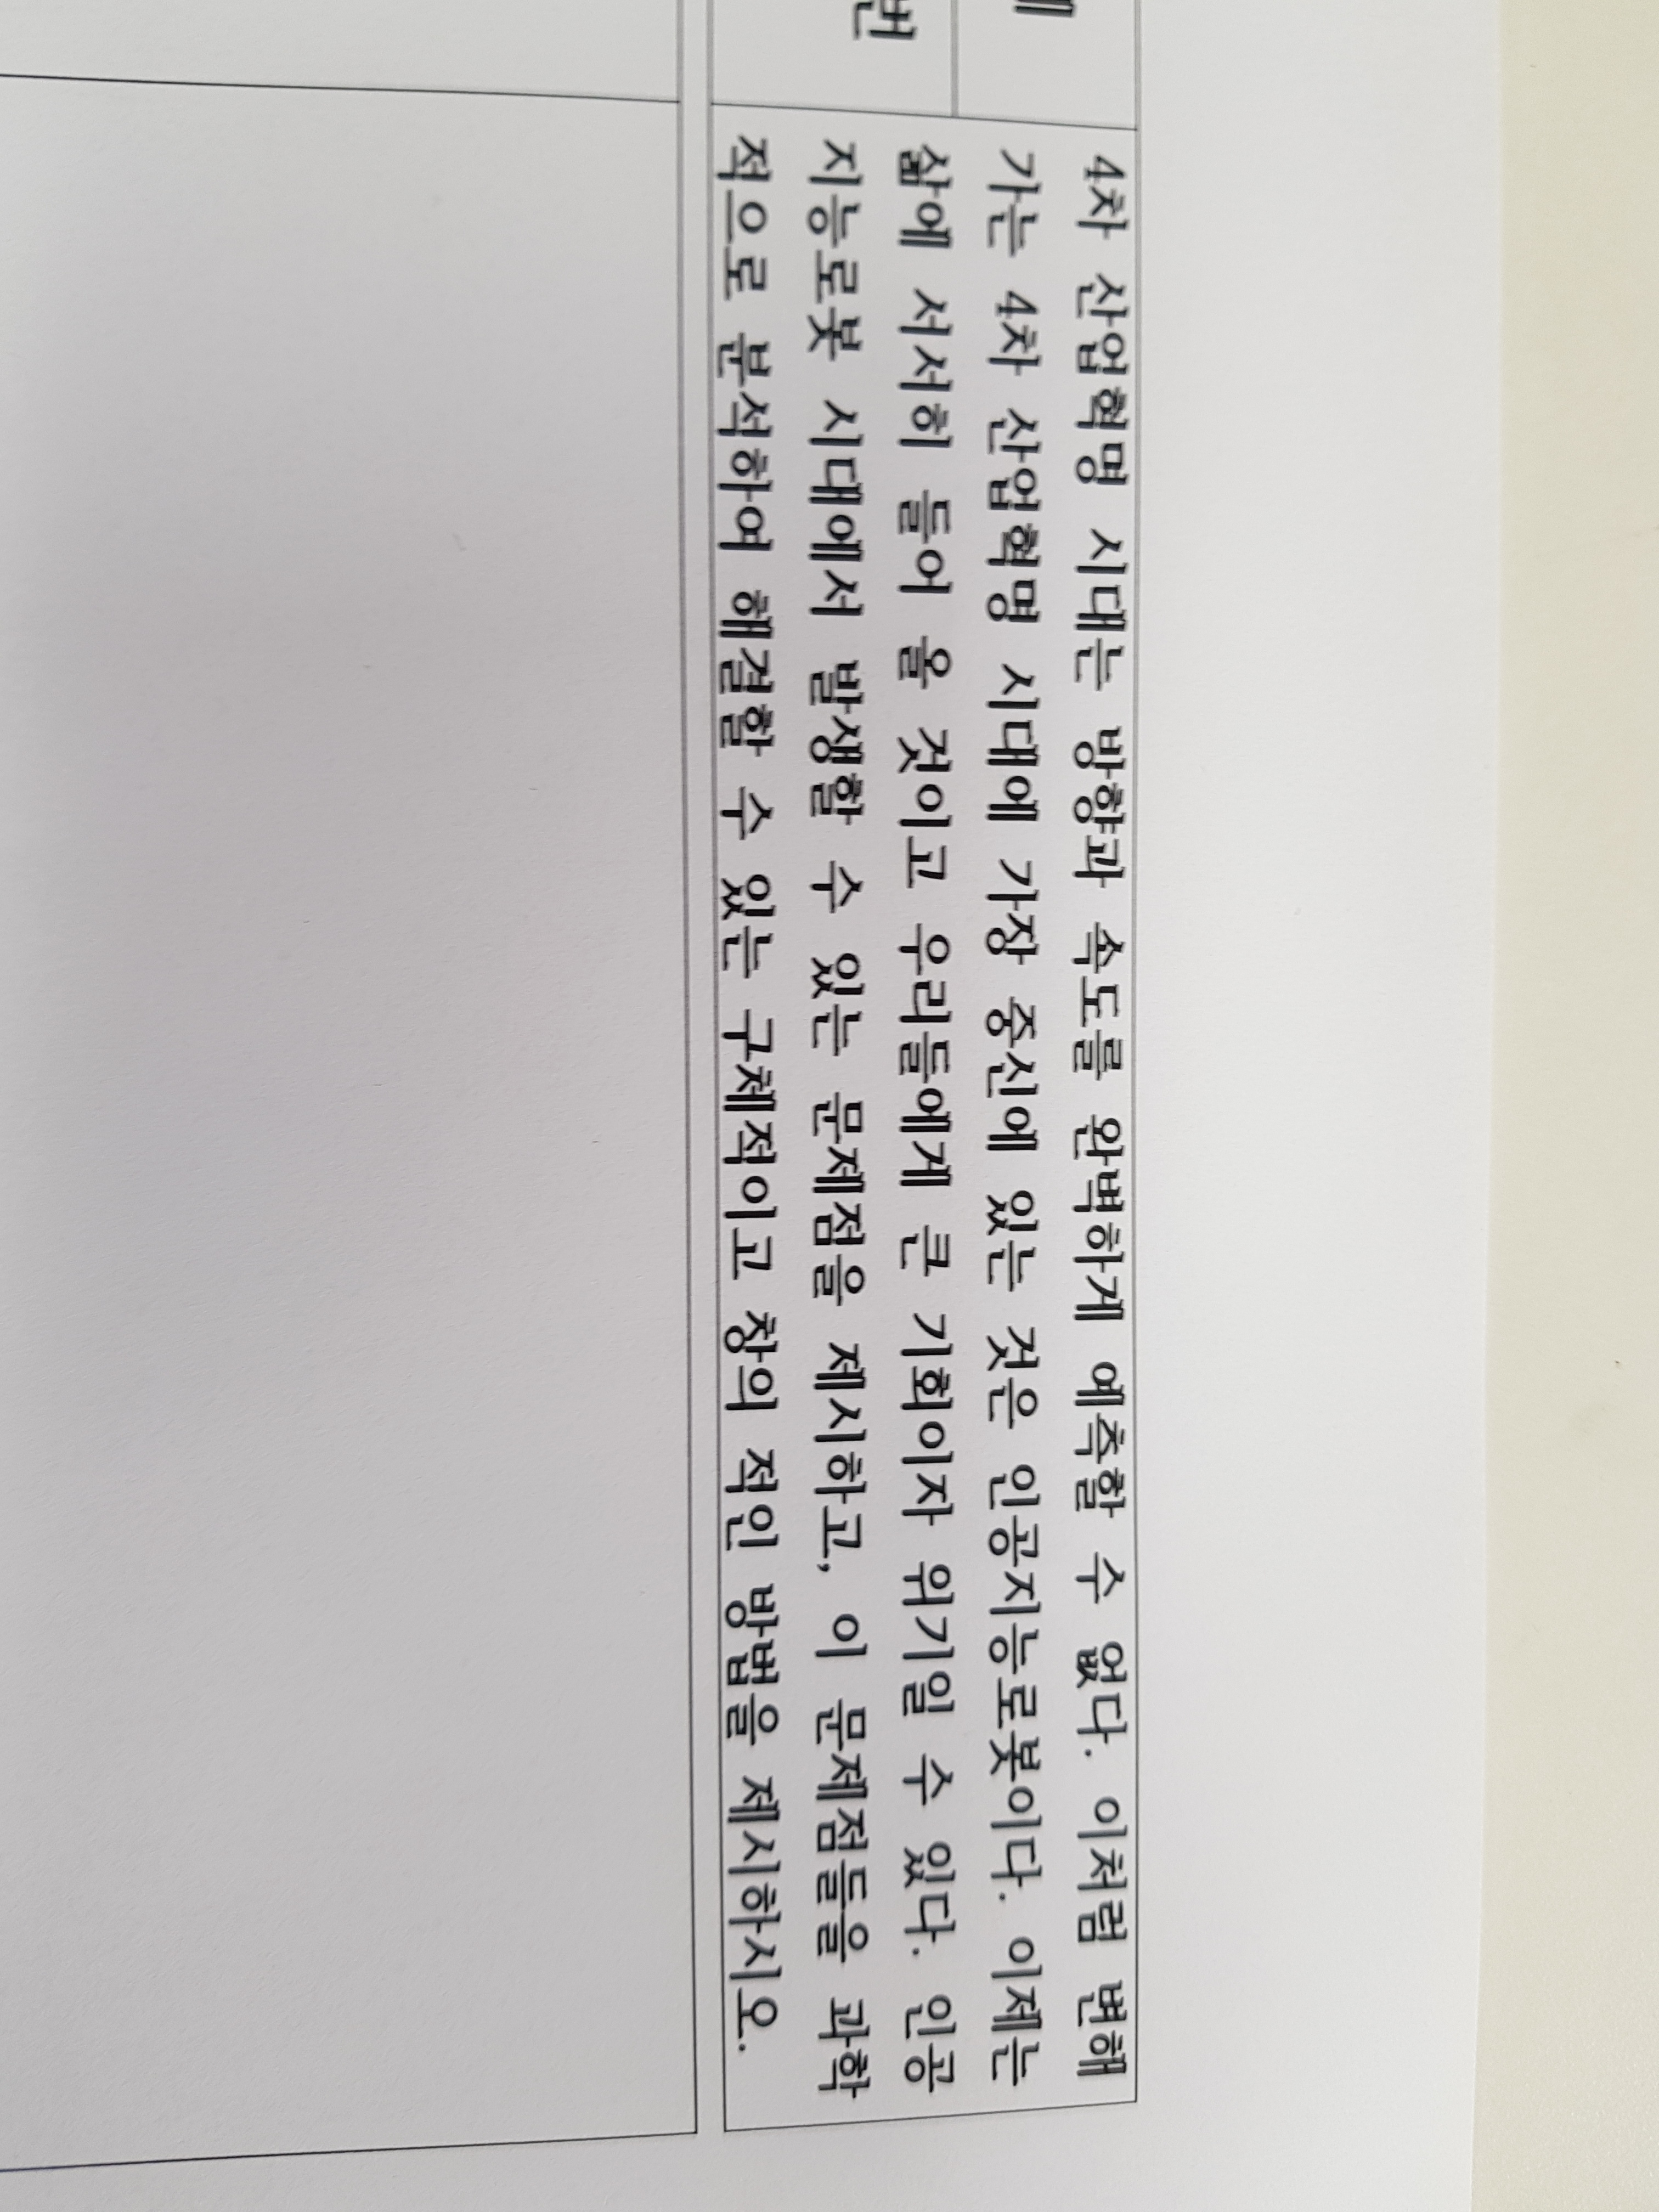 4차 산업혁명 시대는 방향과 속도를 완벽하게 예측할 수 없다. 이처럼 변해
가는 4차 산업혁명 시대에 가장 중심에 있는 것은 인공지능로봇이다. 이제는
삶에 서서히 들어 올 것이고 우리들에게 큰 기회이자 위기일 수 있다. 인공
지능로봇 시대에서 발생할 수 있는 문제점을 제시하고, 이 문제점들을 과학
적으로 분석하여 해결할 수 있는 구체적이고 창의 적인 방법을 제시하시오.
번